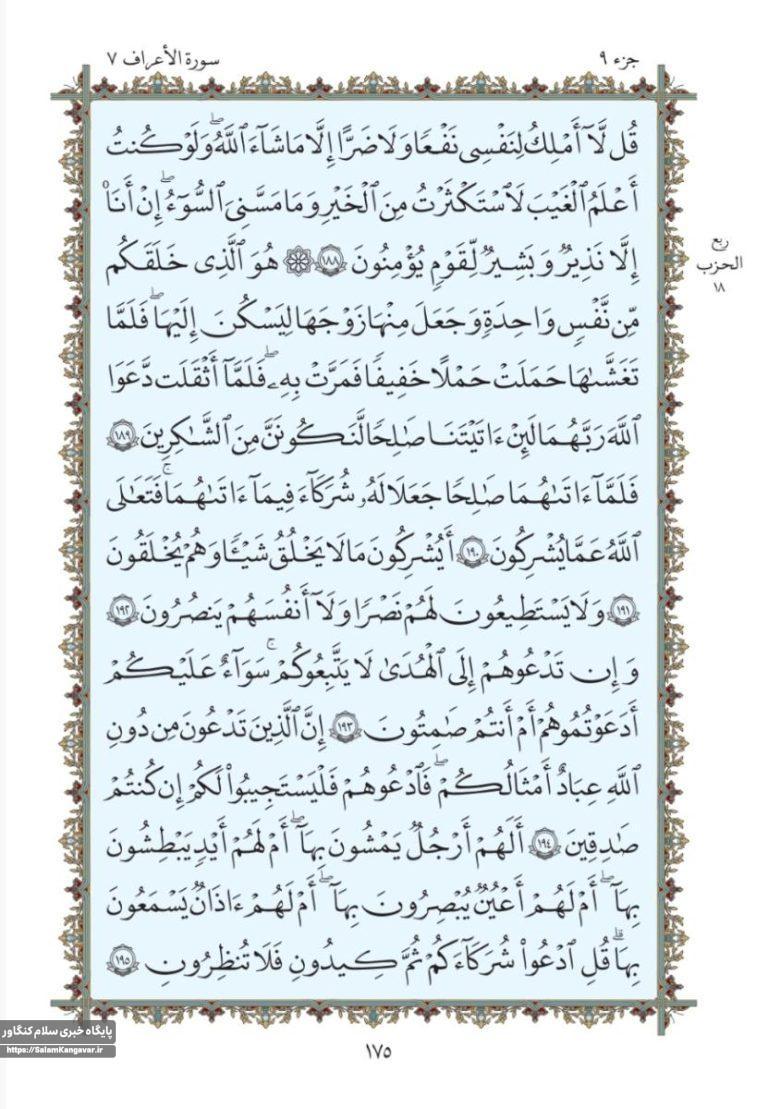 جزء ۹
سورة الأعراف ۷
قُل لَّآ أَمْلِكُ لِنَفْسِى نَفْعًا وَلَا ضَرًّا إِلَّا مَا شَآءَ ٱللَّهُۚ وَلَوْ كُنتُ
أَعْلَمُ ٱلْغَيْبَ لَٱسْتَكْثَرْتُ مِنَ ٱلْخَيْرِ وَمَا مَسَّنِىَ ٱلسُّوٓءُۚ إِنْ أَنَا۠
إِلَّا نَذِيرٌ وَبَشِيرٌ لِّقَوْمٍ يُؤْمِنُونَ ۝١٨٨ ۞ هُوَ ٱلَّذِى خَلَقَكُم
مِّن نَّفْسٍ وَٰحِدَةٍ وَجَعَلَ مِنْهَا زَوْجَهَا لِيَسْكُنَ إِلَيْهَاۖ فَلَمَّا
تَغَشَّىٰهَا حَمَلَتْ حَمْلًا خَفِيفًا فَمَرَّتْ بِهِۦۖ فَلَمَّآ أَثْقَلَت دَّعَوَا
ٱللَّهَ رَبَّهُمَا لَئِنْ ءَاتَيْتَنَا صَٰلِحًا لَّنَكُونَنَّ مِنَ ٱلشَّٰكِرِينَ ۝١٨٩
فَلَمَّآ ءَاتَىٰهُمَا صَٰلِحًا جَعَلَا لَهُۥ شُرَكَآءَ فِيمَآ ءَاتَىٰهُمَاۚ فَتَعَٰلَى
ٱللَّهُ عَمَّا يُشْرِكُونَ ۝١٩٠ أَيُشْرِكُونَ مَا لَا يَخْلُقُ شَيْـًٔا وَهُمْ يُخْلَقُونَ
۝١٩١ وَلَا يَسْتَطِيعُونَ لَهُمْ نَصْرًا وَلَآ أَنفُسَهُمْ يَنصُرُونَ ۝١٩٢
وَإِن تَدْعُوهُمْ إِلَى ٱلْهُدَىٰ لَا يَتَّبِعُوكُمْۚ سَوَآءٌ عَلَيْكُمْ
أَدَعَوْتُمُوهُمْ أَمْ أَنتُمْ صَٰمِتُونَ ۝١٩٣ إِنَّ ٱلَّذِينَ تَدْعُونَ مِن دُونِ
ٱللَّهِ عِبَادٌ أَمْثَالُكُمْۖ فَٱدْعُوهُمْ فَلْيَسْتَجِيبُوا۟ لَكُمْ إِن كُنتُمْ
صَٰدِقِينَ ۝١٩٤ أَلَهُمْ أَرْجُلٌ يَمْشُونَ بِهَآۖ أَمْ لَهُمْ أَيْدٍ يَبْطِشُونَ
بِهَآۖ أَمْ لَهُمْ أَعْيُنٌ يُبْصِرُونَ بِهَآۖ أَمْ لَهُمْ ءَاذَانٌ يَسْمَعُونَ
بِهَاۗ قُلِ ٱدْعُوا۟ شُرَكَآءَكُمْ ثُمَّ كِيدُونِ فَلَا تُنظِرُونِ ۝١٩٥
ربع
الحزب
۱۸
۱۷۵
پایگاه خبری سلام کنگاور
https://SalamKangavar.ir